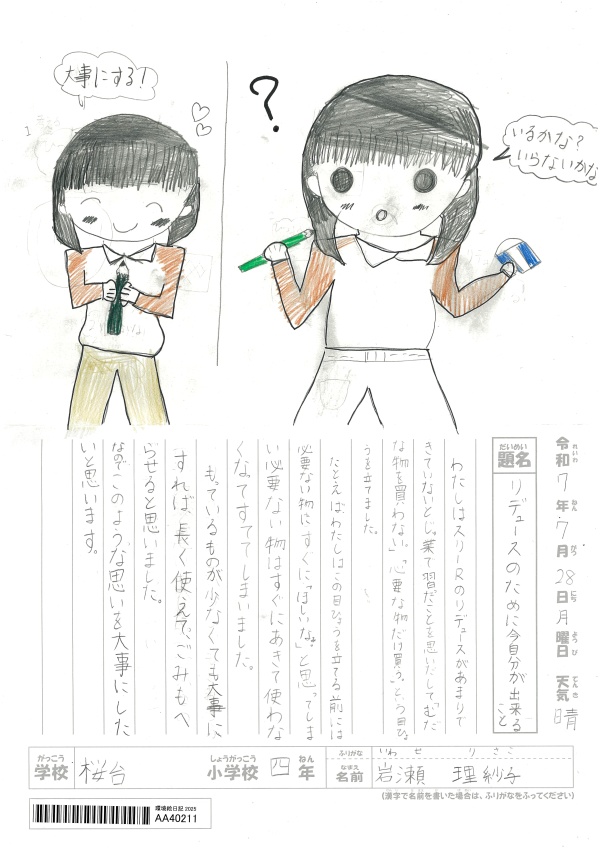 大事にする!
?
いるかな?
いらないかな
令和7年7月28日月曜日 天気 晴
れいわ ねん がつ にち ようび てんき
だいめい
題名
リデュースのために今自分が出来ること
わたしはスリーRのリデュースがあまりで
きていないとじゅ業で習たことを思いだして「むだ
な物を買わない。」「必要な物だけ買う。」という目ひょ
うを立てました。
たとえば、わたしはこの目ひょうを立てる前には
必要ない物にすぐに「ほしいな。」と思ってしま
い必要ない物はすぐにあきて使わな
くなてすててしまいました。
もっているものが少なくても大事に
すれば、長く使えて、ごみもへ
らせると思いました。
なのでこのような思いを大事にした
いと思います。
がっこう
学校
桜台
しょうがっこう
小学校
四
ねん
年
ふりがな
いわ せ り さ こ
なまえ
名前
岩瀬 理紗子
(漢字で名前を書いた場合は、ふりがなをふってください)
環境絵日記 2025
AA40211